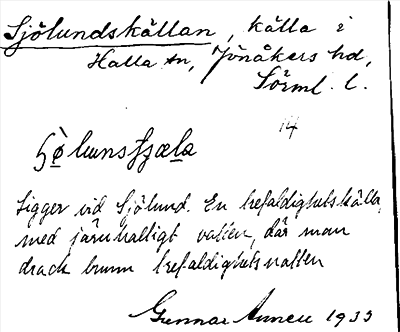 Sjölundskällan, källa i
Halla sn, Jönåkers hd,
Sörml. l.
14
Ligger vid Sjölund. En trefaldighetskälla
med järnhaltigt vatten, där man
drack brunn trefaldighetsnatten
Gunnar 1933